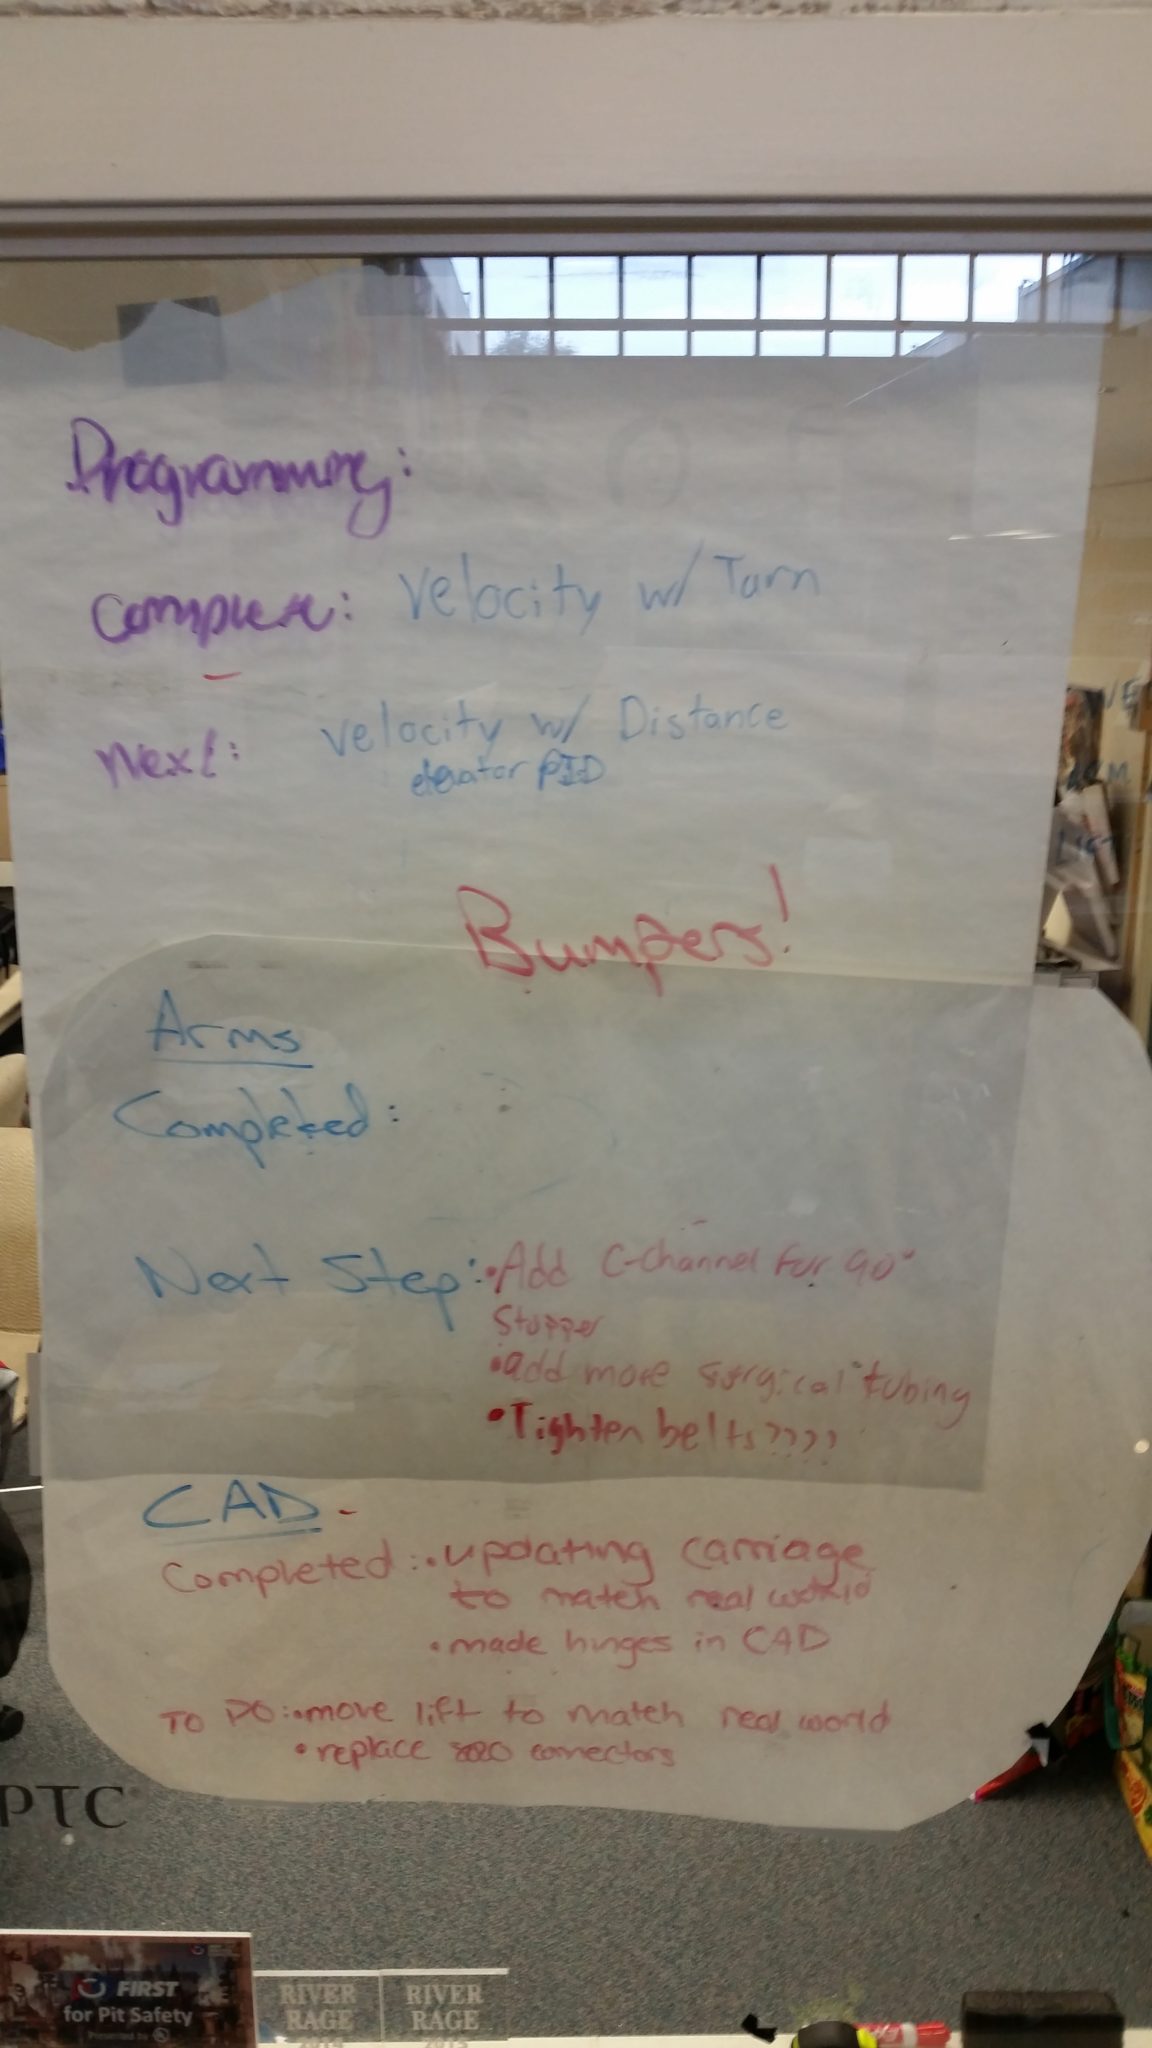 Programming:
Complete: Velocity w/ Turn
Next: Velocity w/ Distance
elevator PID
Bumpers!
Arms
Completed:
Next Step: • Add C-Channel for 90°
Stopper
• add more surgical tubing
• Tighten belts????
CAD
Completed: • updating carriage
to match real world
• made hinges in CAD
TO DO: • move lift to match real world
• replace connectors
PTC
FIRST
for Pit Safety
Presented by
RIVER
RAGE
RIVER
RAGE